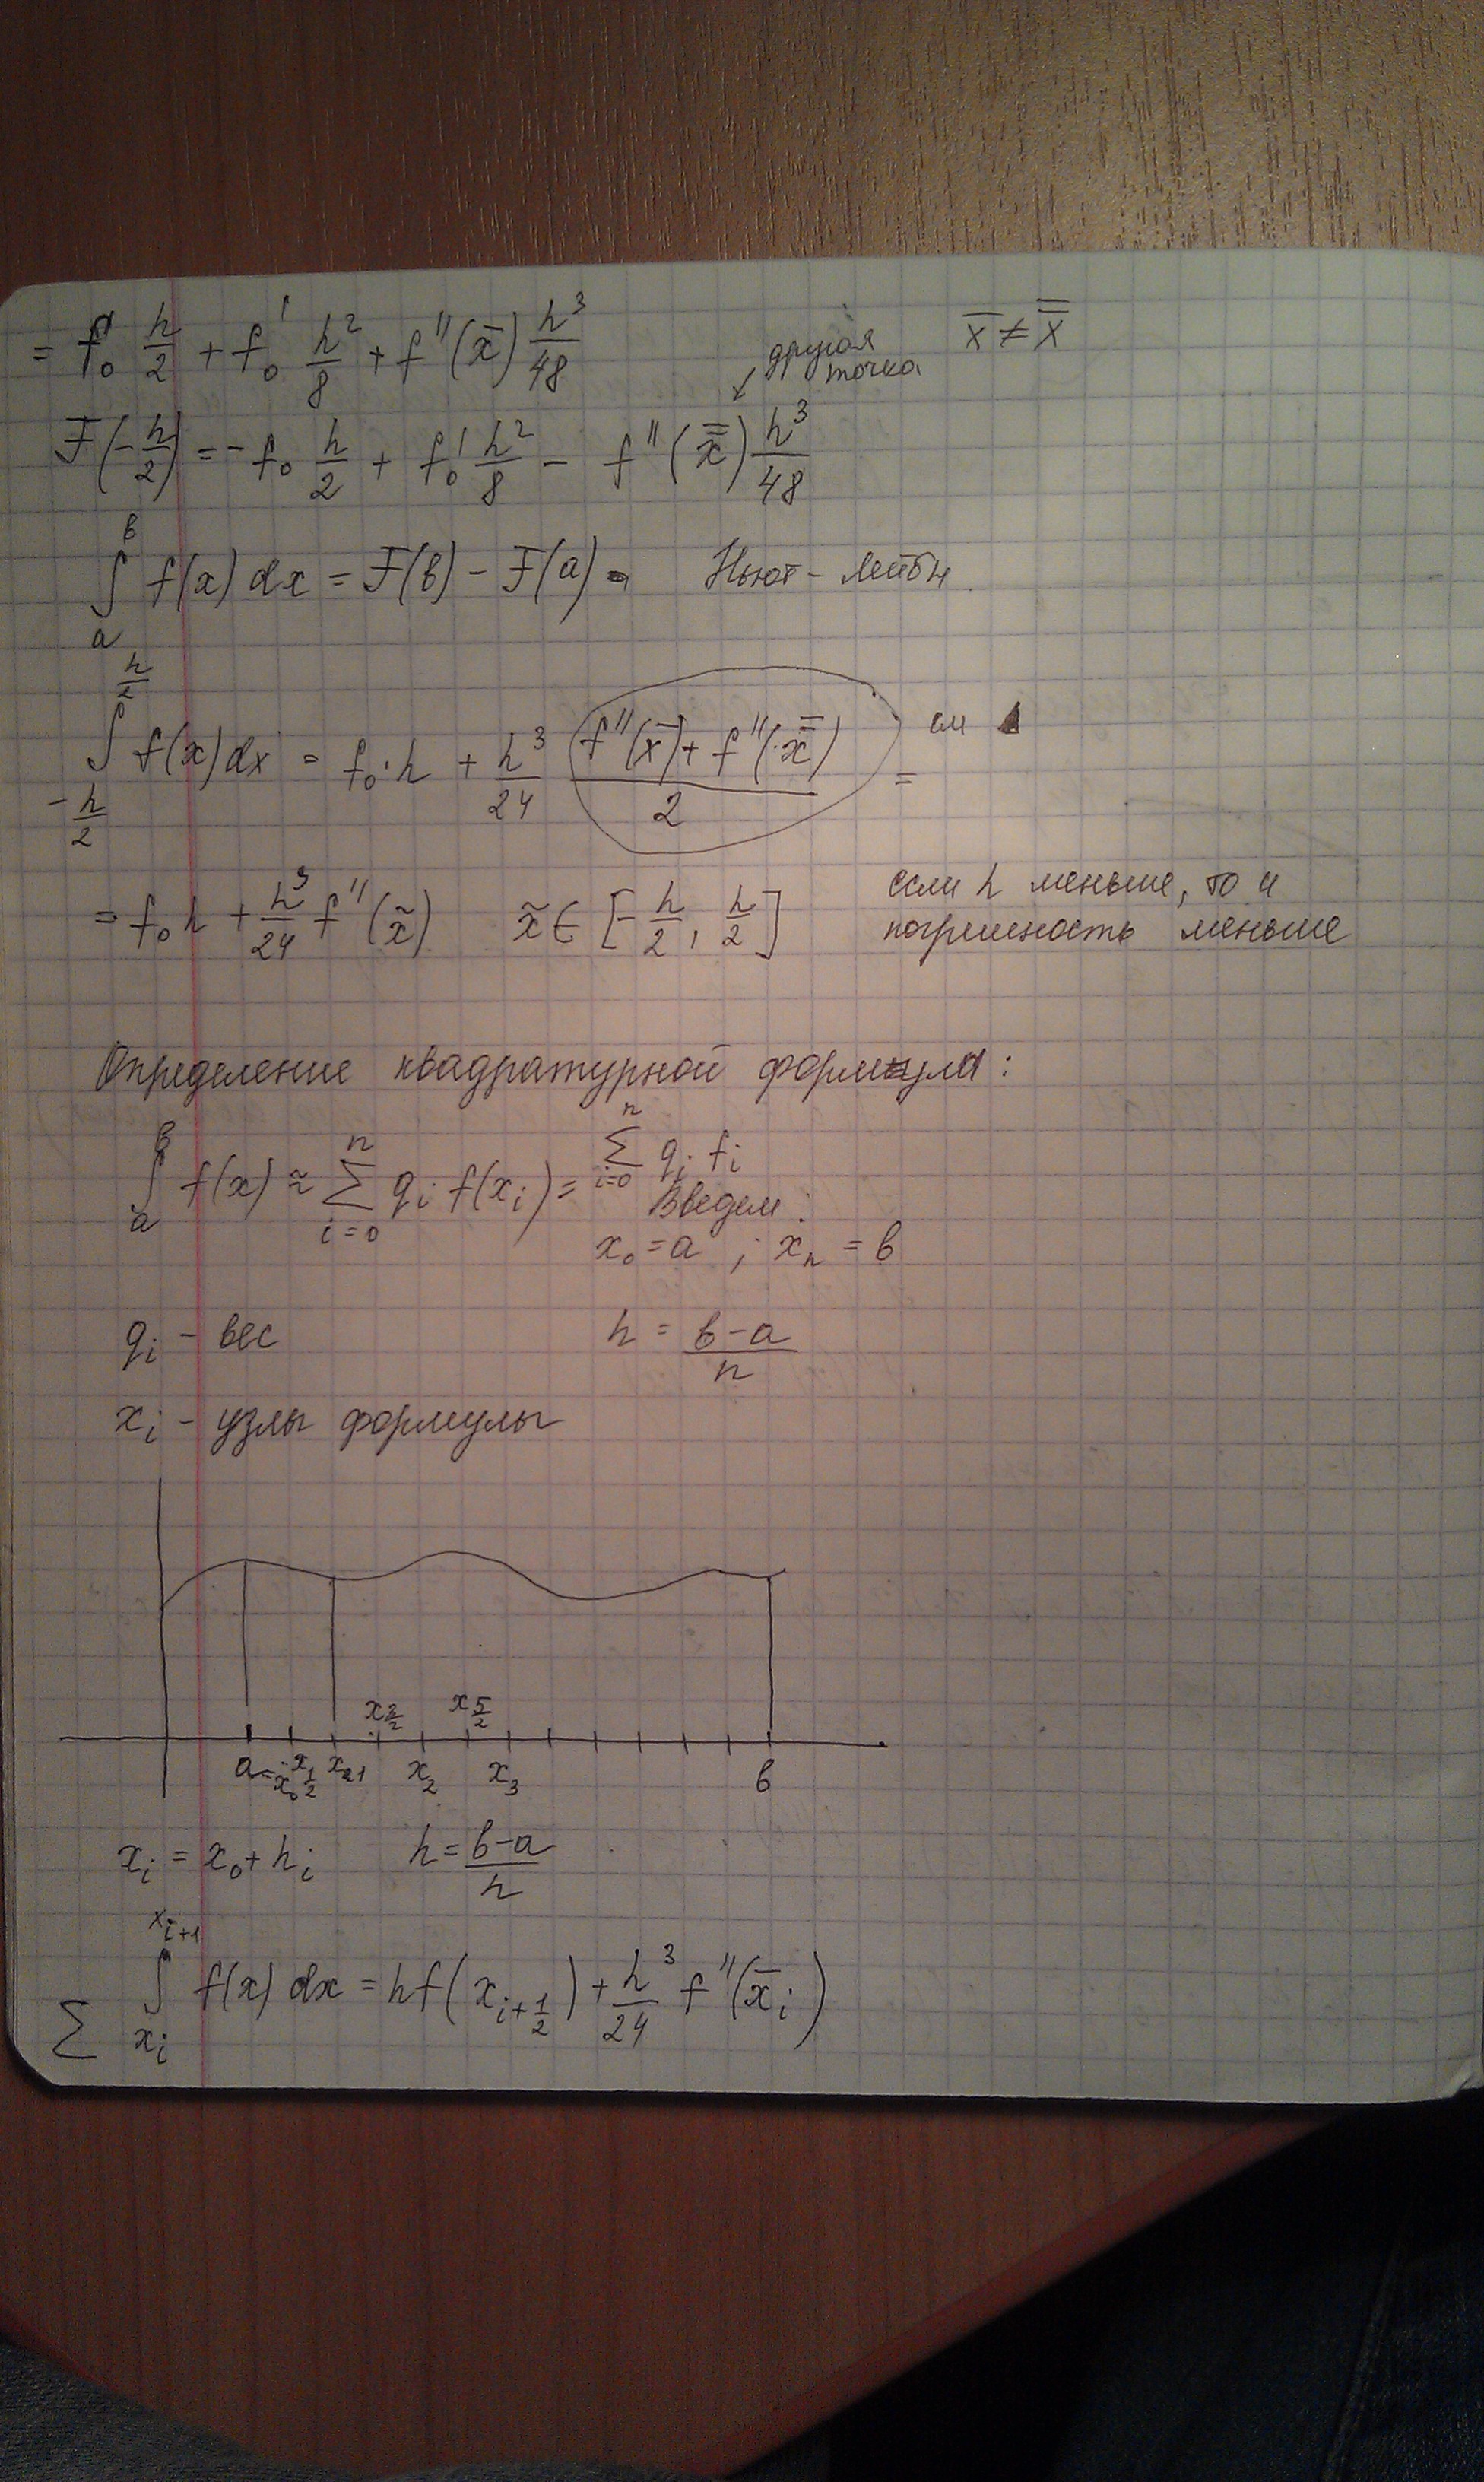 = f₀ h/2 + f₀' h²/8 + f''(x̄) h³/48
другая точка
x̄ ≠ x̿
F(-h/2) = -f₀ h/2 + f₀' h²/8 - f''(x̿) h³/48
∫ₐᵇ f(x) dx = F(b) - F(a) - Ньют-Лейбн
∫_{-h/2}^{h/2} f(x) dx = f₀·h + h³/24 (f''(x̄) + f''(x̿))/2 = см 1
= f₀h + h³/24 f''(x̃) x̃ ∈ [-h/2, h/2]
если h меньше, то и
погрешность меньше
Определение квадратурной формулы:
∫ₐᵇ f(x) ≈ ∑_{i=0}^{n} qᵢ f(xᵢ) = ∑_{i=0}^{n} qᵢ fᵢ
Введем:
x₀ = a ; xₙ = b
qᵢ - вес h = (b-a)/n
xᵢ - узлы формулы
x_{3/2} x_{5/2}
a = x₀ x_{1/2} x₁ x₂ x₃ b
xᵢ = x₀ + hᵢ h = (b-a)/n
∑ ∫_{xᵢ}^{x_{i+1}} f(x) dx = hf(x_{i+1/2}) + h³/24 f''(x̄ᵢ)